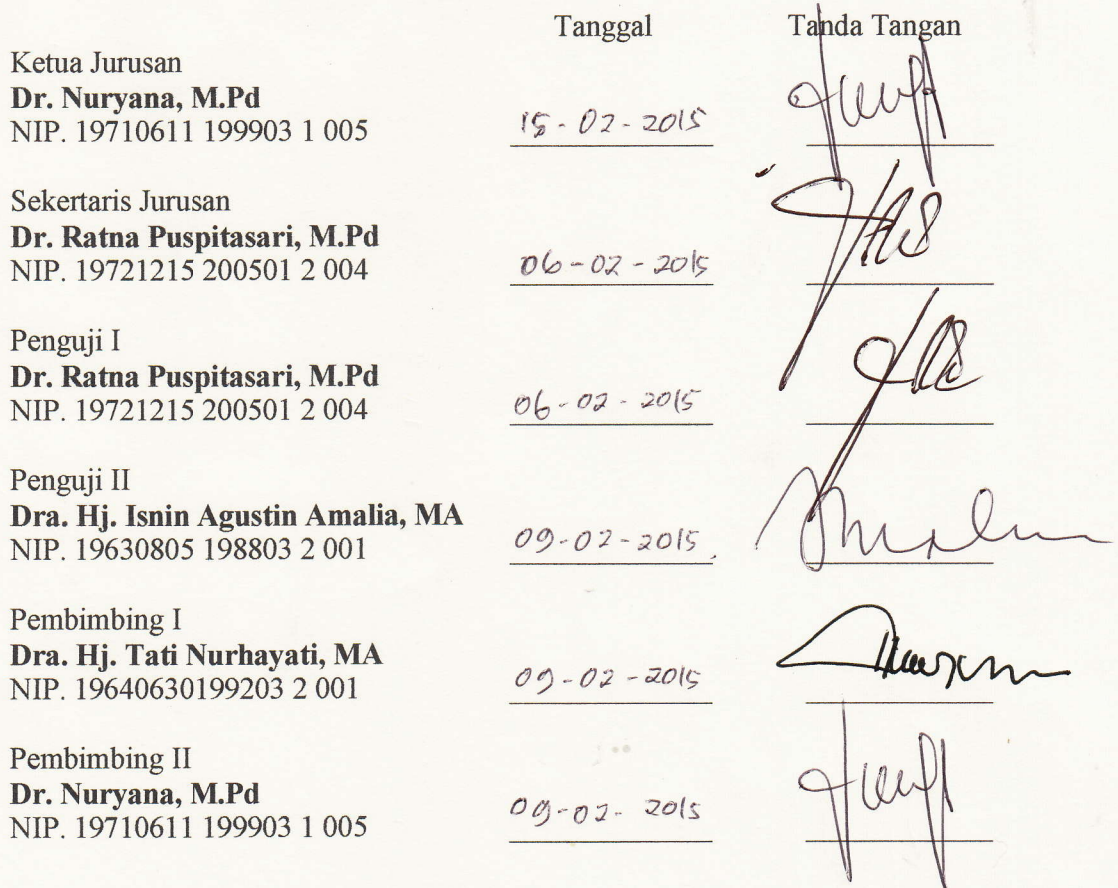 Tanggal Tanda Tangan
Ketua Jurusan
Dr. Nuryana, M.Pd
NIP. 19710611 199903 1 005 15-02-2015
Sekertaris Jurusan
Dr. Ratna Puspitasari, M.Pd
NIP. 19721215 200501 2 004 06-02-2015
Penguji I
Dr. Ratna Puspitasari, M.Pd
NIP. 19721215 200501 2 004 06-02-2015
Penguji II
Dra. Hj. Isnin Agustin Amalia, MA
NIP. 19630805 198803 2 001 09-02-2015
Pembimbing I
Dra. Hj. Tati Nurhayati, MA
NIP. 19640630199203 2 001 09-02-2015
Pembimbing II
Dr. Nuryana, M.Pd
NIP. 19710611 199903 1 005 09-02-2015